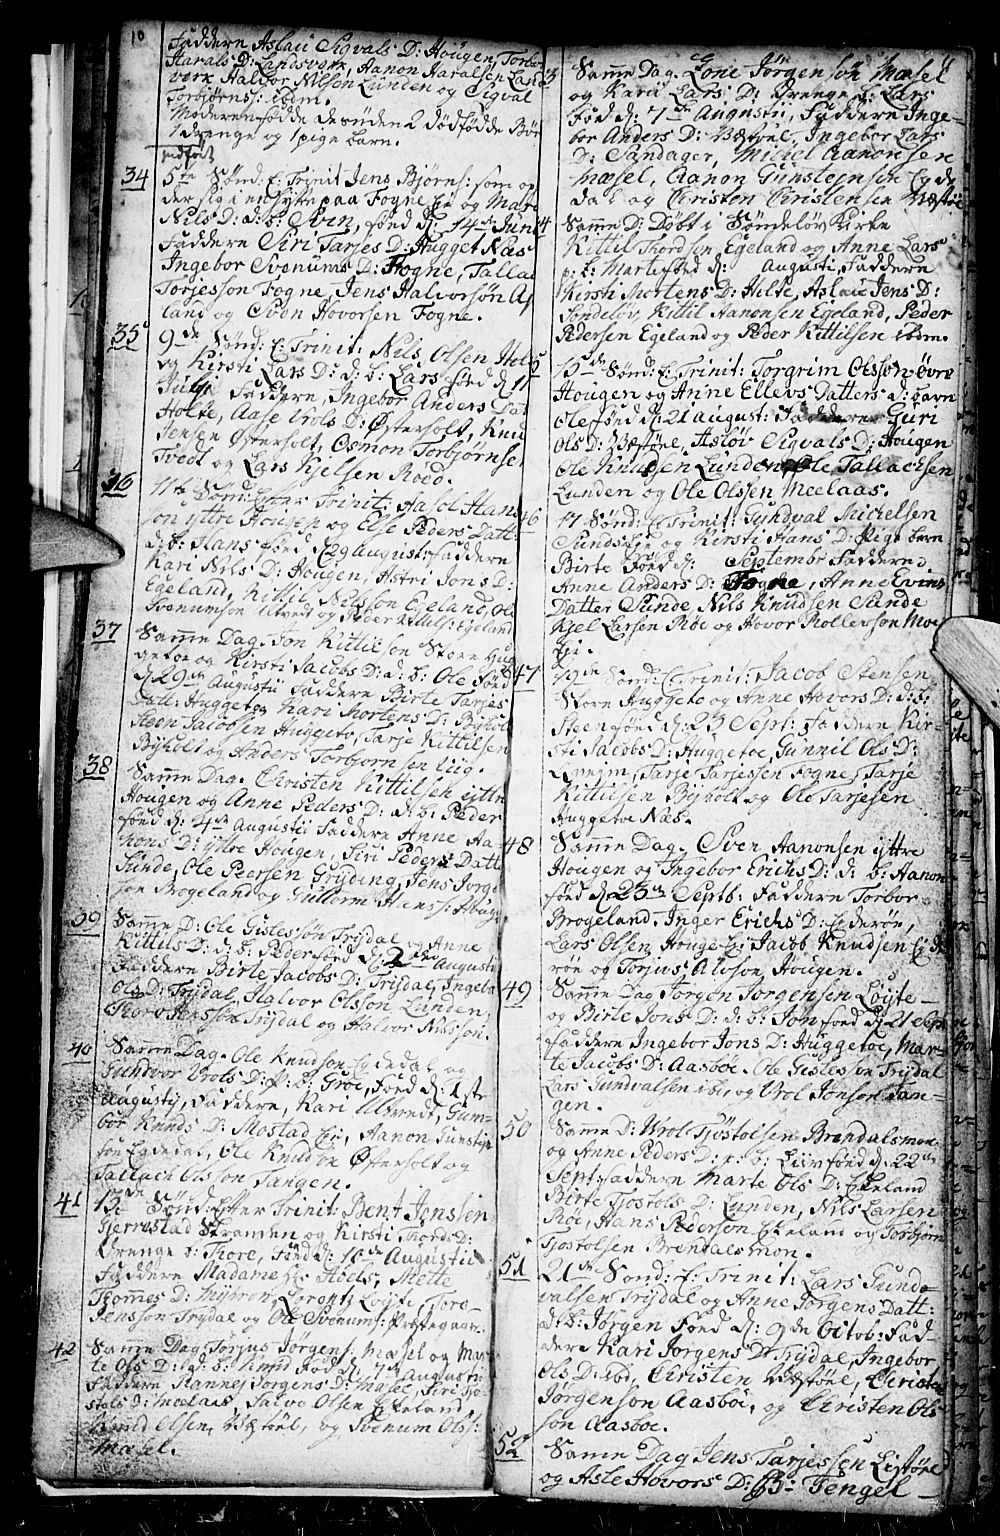 10
Faddere Aslau Sigvals D: Hougen, Torbor
Harals D: Landsverk, Aanon Haralsen Lands
verk Halvor Nilsøn Lunden og Sigval
Torbjørns: ibdm.
Moderen fødde desuden 2 dødfødde Børn
1 drenge og 1 pige barn.
34
5te Sønd: E: Trinit Jens Bjørns: som op
der sig i paa Fogne Eje og Mari
Nils D: d: b: Sven, fönd d: 14de Junii
Faddere Siri Tarjes D: Hugget Næs
Ingebor Svenums D: Fogne, Tallac
Torjesson Fogne, Jens Halvorsøn As
land og Sven Hovorsen Fogne.
35
9de Sønd: E: Trinit: Nils Olsen Holte
og Kirsti Lars D: d: b: Lars föd d: 11
Julii Faddere, Ingebor Anders Dat
Holte, Aase Vrols D: Østerholt, Knu
Jensen Østerholt, Osmon Torbjørnse
Tvedt og Lars Kjelsen Røed.
36
11te Sønd: Efter Trinit: Aasol Hans
son yttre Hougen og Else Peders Datt:
d: b: Hans föed d: 9 Augusti Faddere
Kari Nils D: Hougen, Astri Jons D:
Egeland, Kittil Nilsson Egeland, Ole
Svenumson Ulvedt og Peder Kittils: Egeland
37
Samme Dag. Jon Kittilsen Store Hug
getoe og Kirsti Jacobs D: d: b: Ole föed
d: 29de Augustii Faddere Birte Tarjes
Datt: Huggetoe, Kari Mortens D: Byholt
Steen Jacobsen Huggeto, Tarje Kittilsen
Byholt og Anders Torbjornsen Vüg.
38
Samme Dag. Christen Kittilsen yttre
Hougen og Anne Peders D: d: b: Peder
föed d: 4de Augustii Faddere Anne Aa-
nons D: yttre Hougen, Siri Peders Datt
Sunde, Ole Peersen Gryting, Jens Jorge
son Brogeland og Guttorm Hans: Houg
39
Samme D: Ole Gislessøn Trydal og Anne
Kittils D: d: b: Peder föd d: 2den Augusti
Faddere Birte Jacobs D: Trydal, Ingebor
Ols D: Trydal, Halvor Olsson Lunden,
Thoro Jensson Trydal og Halvor Nilsson.
40
Samme Dag. Ole Knudson Egdedal og
Gundvor Vrols D: p: b: Groe, föed d: 1ste
Augusty, Faddere, Kari Ulltvedt, Gum-
bor Knuds D: Mostad Eje, Aanon Gunstein
son Egdedal, Ole Knudson Østerholt og
Tallach Olsson Tangen.
41
13de Sønd: Efter Trinit: Bent Jensen
Gjerrestad Stranden og Kirsti Thord: D:
Drenge b: Thore, Föed d: 10de Augustii
Faddere Madame Sr Hoels, Mette
Tommes D: Myhren, Lorentz Løyte, Tore
Jensson Trydal og Ole Svenums: Præstegaar.
42
Samme Dag Torjus Jørgens: Mæsel og Mar
te Ols D: d: b: Knud Föd d: 7de Augusti
Faddere Rannei Jorgens D: Mæsel, Siri Tjø
stols D: Meelaas, Salve Olsen Ekeland,
Knud Olsen, Væstøel, og Svenum Ols:
Mæsel.
11
43
Samme Dag. Lone Jørgensøn Mæsel
og Karii Lars D: Drenge b: Lars
Föed d: 7de Augustii, Faddere Inge-
bor Anders D: Væstøel, Ingebor Lars
D: Sandager, Michel Aanonsen
Mæsel, Aanon Gunsteensen Egde
dal og Christen Christensen Væstøe
44
Samme D: Døbt i Søndeløv Kirke
Kittil Thordsen Egeland og Anne Lars
p: b: Marte föed d: Augusti, Faddere
Kirsti Mortens D: Holte, Aslau Jens D:
Søndeløv, Kittil Aanonsen Egeland, Peder
Pedersen Egeland og Peder Kittilsen ibdm.
45
15de Sønd: E: Trinit: Torgrim Olsson øvre
Hougen og Anne Ellevs Datters d: barn
Ole föed d: 21 August: Faddere Guri
Ols D: Væstøe, Asløv Sigvals D: Hougen
Ole Knudsen Lunden, Ole Tallachsen
Lunden og Ole Olssen Meelaas.
46
17 Sønd: E: Trinit: Gundval Michelsen
Sunds Eje og Kirsti Hans D: Pige barn
Birte Föed d: Septembr Faddere
Anne Anders D: Fogne, Anne Evins
Datter Sunde, Nils Knudsen Sunde
Kjel Larsen Røe og Hovor Rollevson Moe
Eje.
47
19de Sønd: E: Trinit: Jacob Stensen
Store Huggeto og Anne Hovors D: d: b:
Steen föed d: 23 Sept: Faddere Kir-
sti Jacobs D: Huggetoe, Gunnil Ols D:
Tarje Tarjessen Fogne, Tarje
Kittilsen Byholt og Ole Tarjesen
Huggetoe Næs.
48
Samme Dag. Sven Aanonsen yttre
Hougen og Ingebor Erichs D: d: b: Aanon
föed d: 23de Septb: Faddere Torbor
Brogeland, Inger Erichs D: Egderøn,
Lars Olsen Houge Eje: Jacob Knudsen Egde
røn og Torjus Alvson Hougen.
49
Samme Dag Jorgen Jorgensen Løyte-
og Birte Jons D: d: b: Jon föed d: 21 Septm
Faddere Ingebor Jons D: Huggetoe, Mar-
te Jacobs D: Aasboe. Ole Gislesen Trydal
Lars Gundvalsen ibm, og Vrol Jonson Tan-
gen.
50
Samme D: Vrol Tjøstolsen Brendalsmon
og Anne Peders D: p: b: Liiv föed d: 22de
Sept: Faddere Marte Ols D: Ekeland
Birte Tjostols D: Lunden, Nils Larsen
Røe, Hans Pederson Ekeland og Torbjørn
Tjostolsen Brendalsmon.
51
21de Sønd: E: Trinit: Lars Gund-
valsen Trydal og Anne Jorgens Datt:
d: b: Jørgen Föed d: 9de Octob: Fad-
dere Kari Jorgens D: Trydal, Ingebor
Ols D: ibd, Christen Væstøel, Christen
Jørgenson Aasboe, og Christen Ols
søn Aasboe.
52
Samme Dag Jens Tarjessen Lestøel
og Asle Hovors D: p: B: Tengel